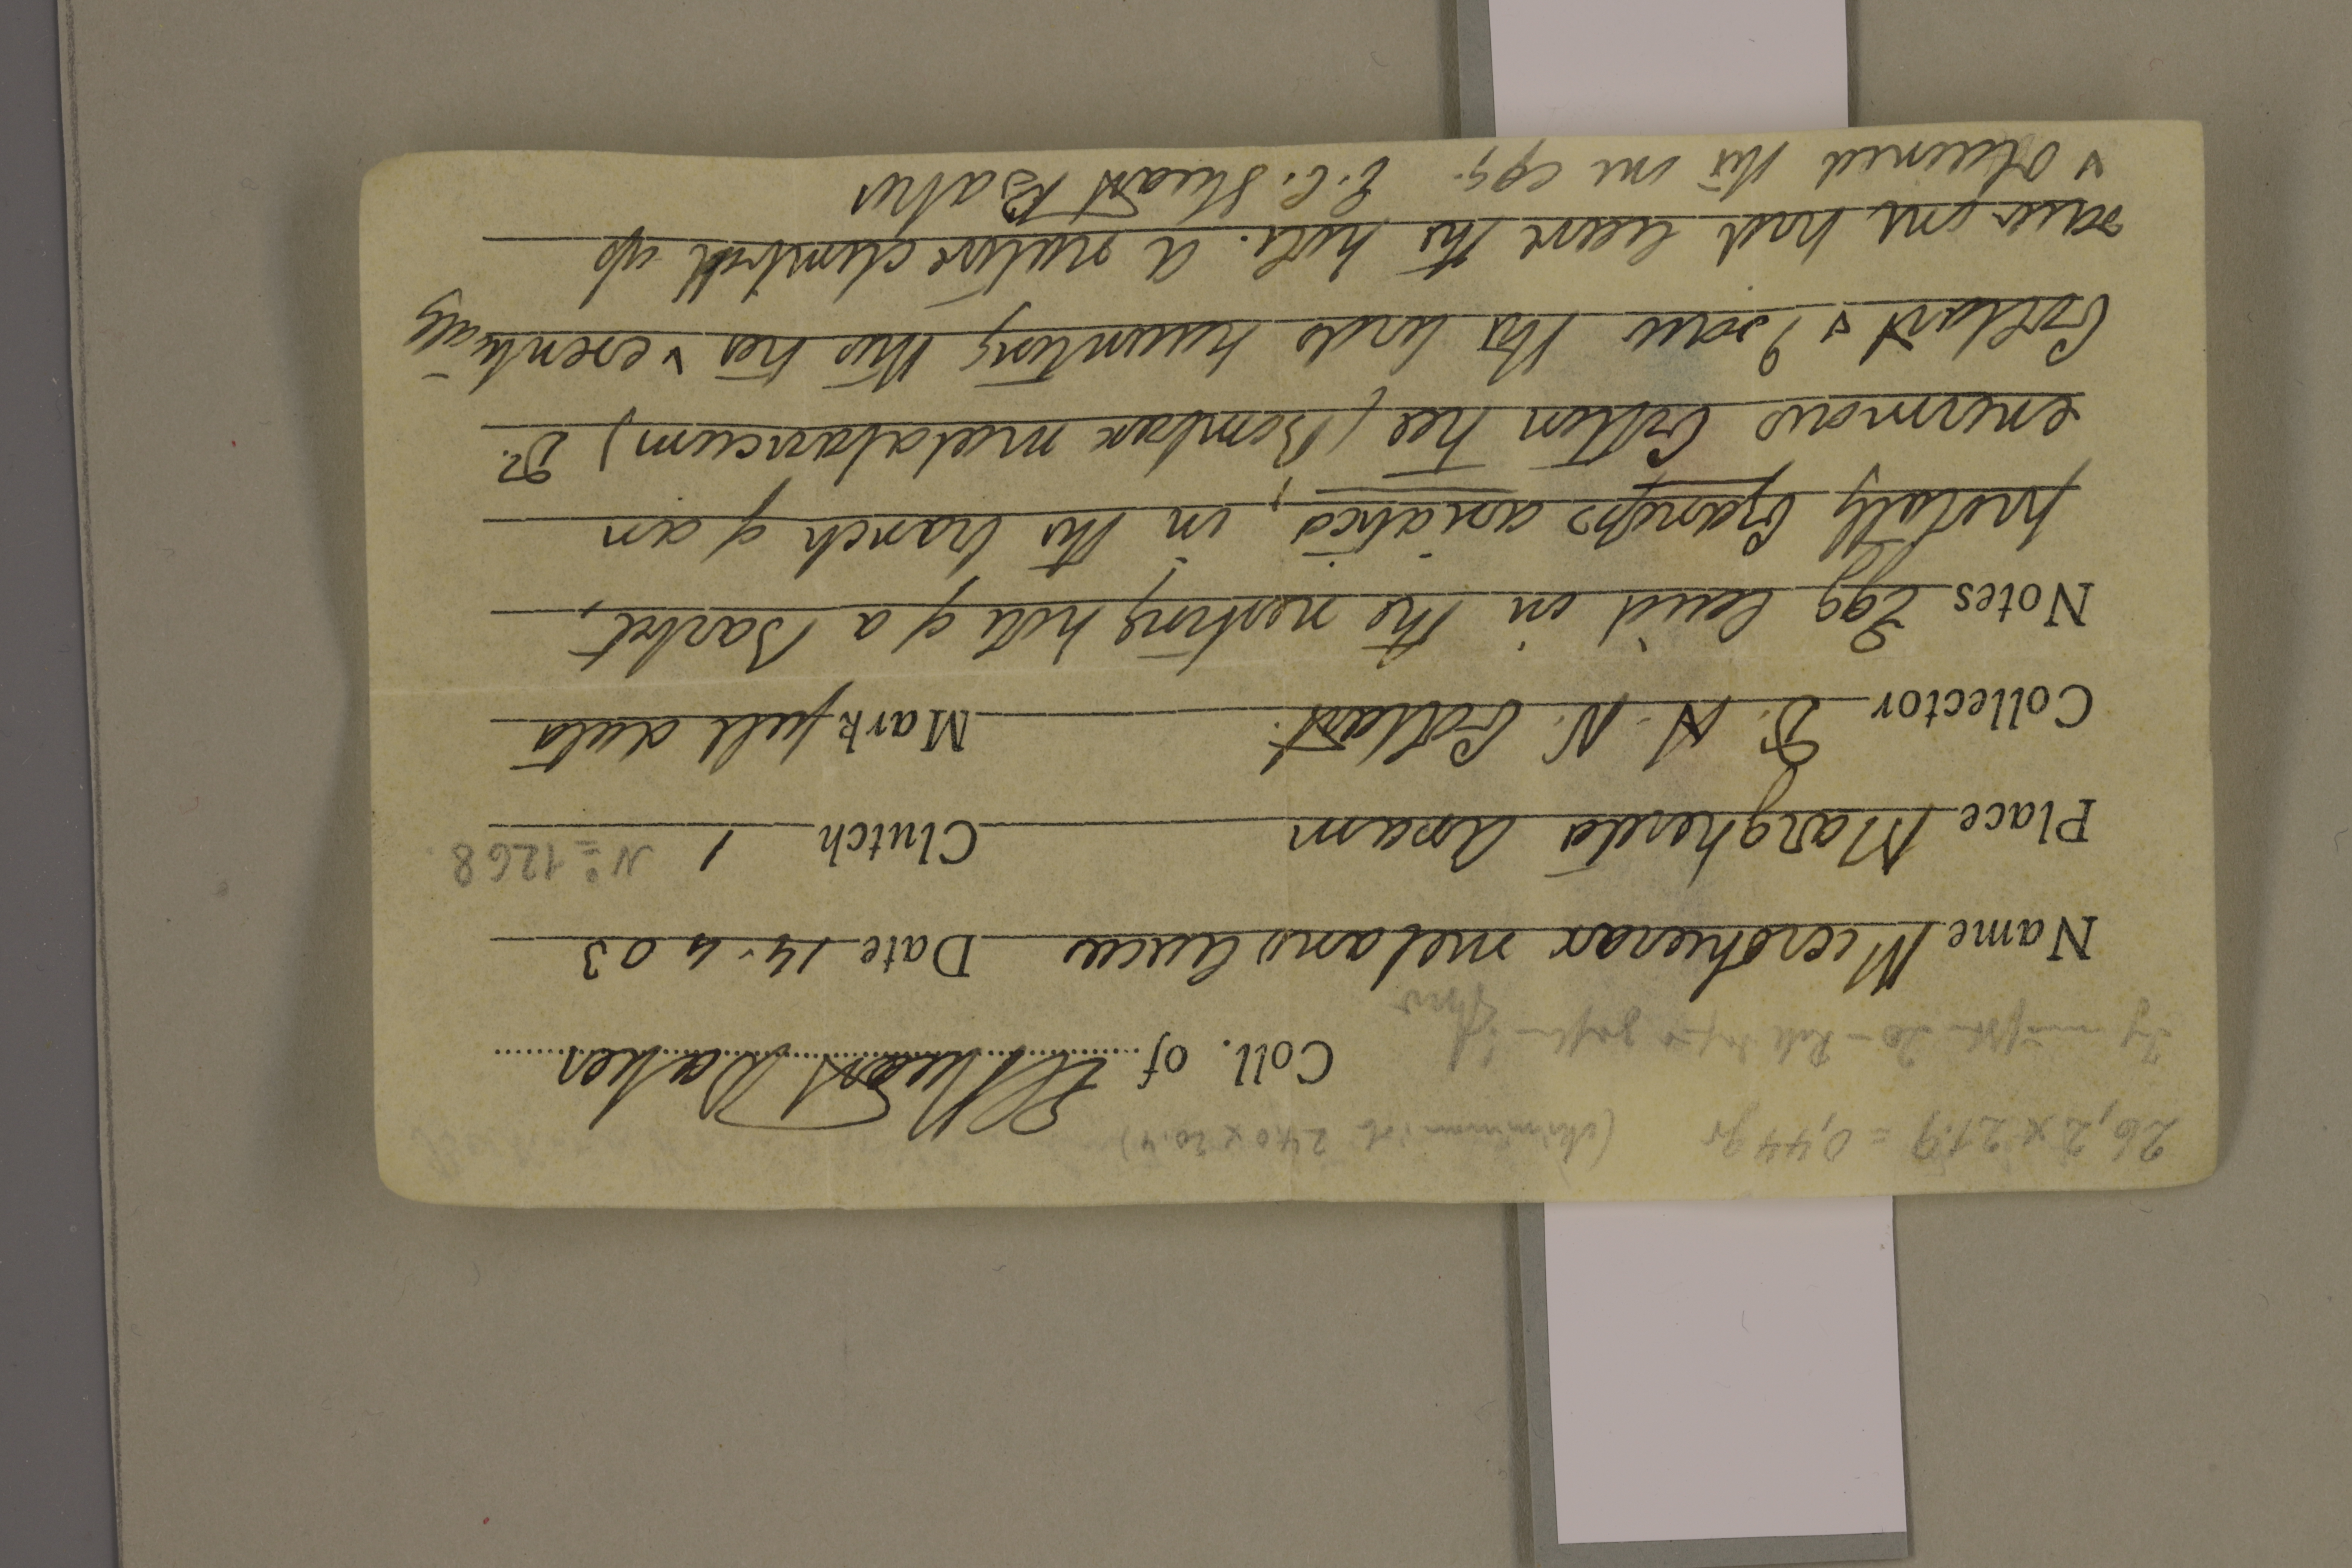 26,2 x 21.9 = 0,44 gr (240 x 20.4)
Coll. of EC Stuart Baker
Name Microhierax melanoleucus Date 14.4 03
Place Margherita Assam Clutch 1 Nº 1268.
Collector Dr. H. N. Coltart. Mark full data
Notes Egg laid in the nesting hole of a Barbet,
Cyanops asiatica, in the branch of an
enormous Cotton tree (Bombax malabaricum) Dr.
Coltart & I saw the birds haunting this tree & eventually
saw one bird leave the hole. A native climbed up
& obtained this one egg. E.C. Stuart Baker